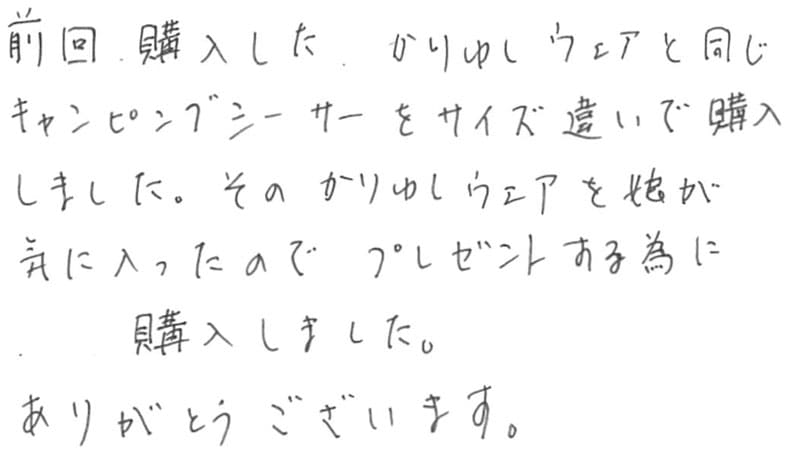 前回購入した かりゆしウェアと同じ
キャンピングシーサーをサイズ違いで購入
しました。そのかりゆしウェアを娘が
気に入ったのでプレゼントする為に
購入しました。
ありがとうございます。